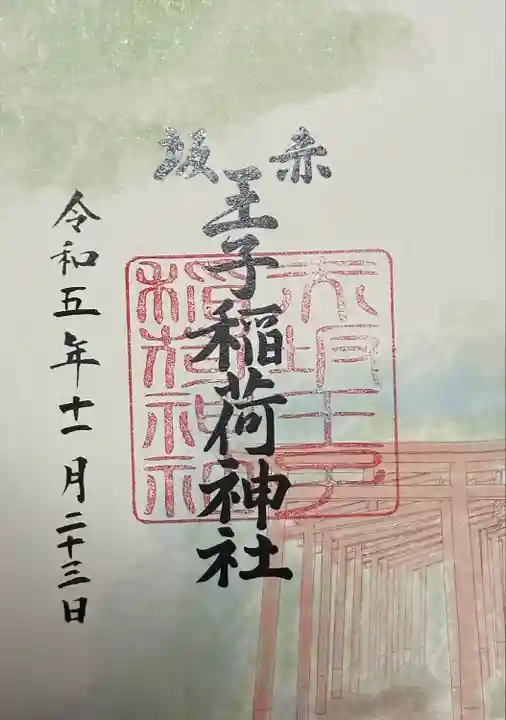 赤坂
王子稲荷神社
赤坂王子
稲荷神社
令和五年十一月二十三日